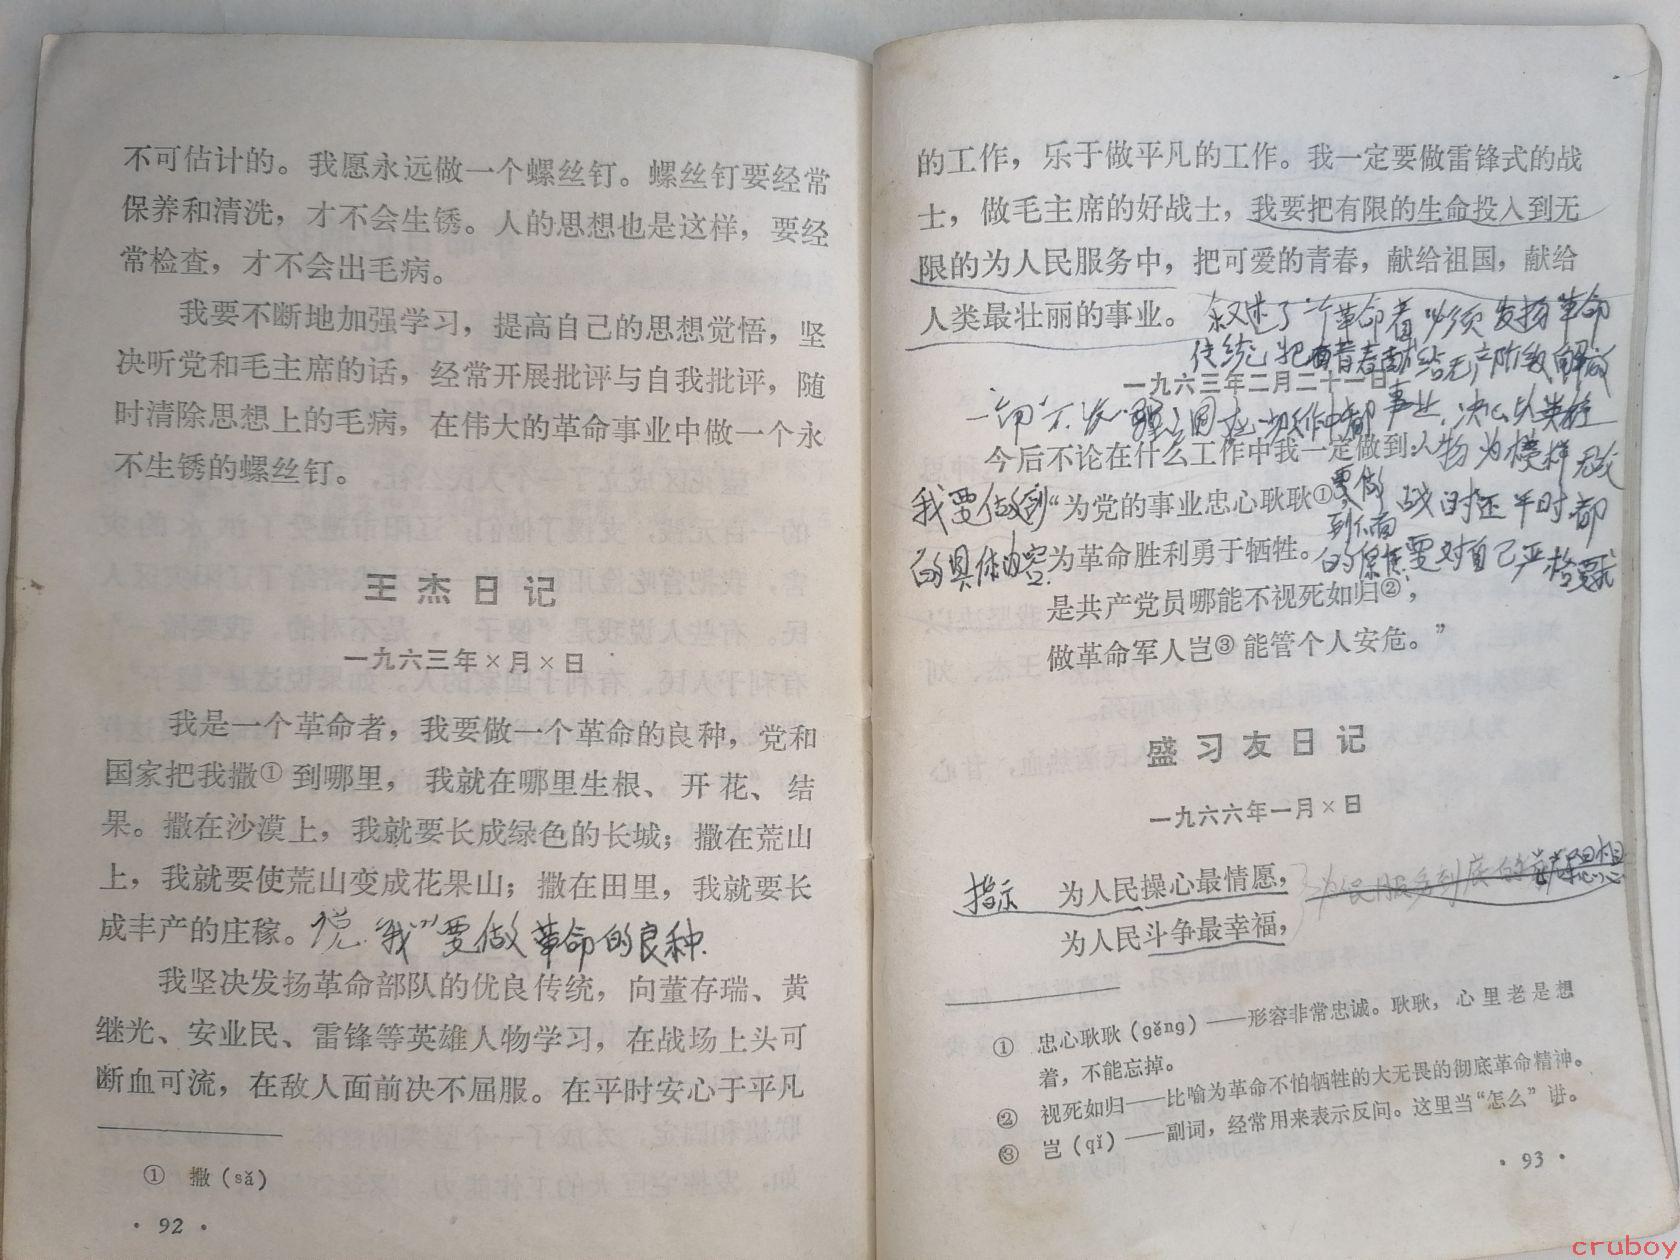 不可估计的。我愿永远做一个螺丝钉。螺丝钉要经常
保养和清洗，才不会生锈。人的思想也是这样，要经
常检查，才不会出毛病。
我要不断地加强学习，提高自己的思想觉悟，坚
决听党和毛主席的话，经常开展批评与自我批评，随
时清除思想上的毛病，在伟大的革命事业中做一个永
不生锈的螺丝钉。
王杰日记
一九六三年×月×日
我是一个革命者，我要做一个革命的良种，党和
国家把我撒①到哪里，我就在哪里生根、开花、结
果。撒在沙漠上，我就要长成绿色的长城；撒在荒山
上，我就要使荒山变成花果山；撒在田里，我就要长
成丰产的庄稼。说“我”要做革命的良种.
我坚决发扬革命部队的优良传统，向董存瑞、黄
继光、安业民、雷锋等英雄人物学习，在战场上头可
断血可流，在敌人面前决不屈服。在平时安心于平凡
① 撒（sǎ）
·92·
的工作，乐于做平凡的工作。我一定要做雷锋式的战
士，做毛主席的好战士，我要把有限的生命投入到无
限的为人民服务中，把可爱的青春，献给祖国，献给
人类最壮丽的事业。
叙述了一个革命者必须发扬革命
传统把青春献给无产阶级解放
一九六三年二月二十一日
事业，决心以英雄
今后不论在什么工作中我一定做到：
人物为模样无论
我要做到
“为党的事业忠心耿耿①，
要做
战时还平时都
到
的具体内容
为革命胜利勇于牺牲。
要对自己严格要求
是共产党员哪能不视死如归②，
做革命军人岂③能管个人安危。”
盛习友日记
一九六六年一月×日
指示
为人民操心最情愿，
为人民斗争最幸福，
① 忠心耿耿（gěng）——形容非常忠诚。耿耿，心里老是想
着，不能忘掉。
② 视死如归——比喻为革命不怕牺牲的大无畏的彻底革命精神。
③ 岂（qǐ）——副词，经常用来表示反问。这里当“怎么”讲。
·93·
cruboy